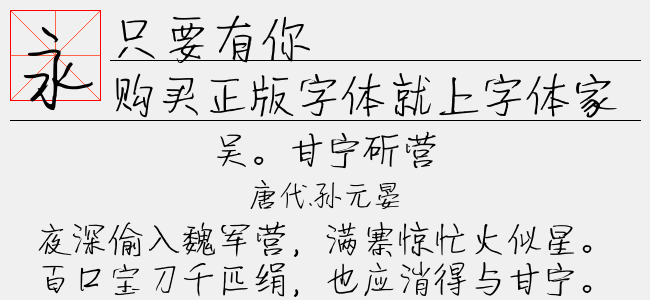 永
只要有你
购买正版字体就上字体家
吴。甘宁斫营
唐代.孙元晏
夜深偷入魏军营，满寨惊忙火似星。
百口宝刀千匹绢，也应消得与甘宁。